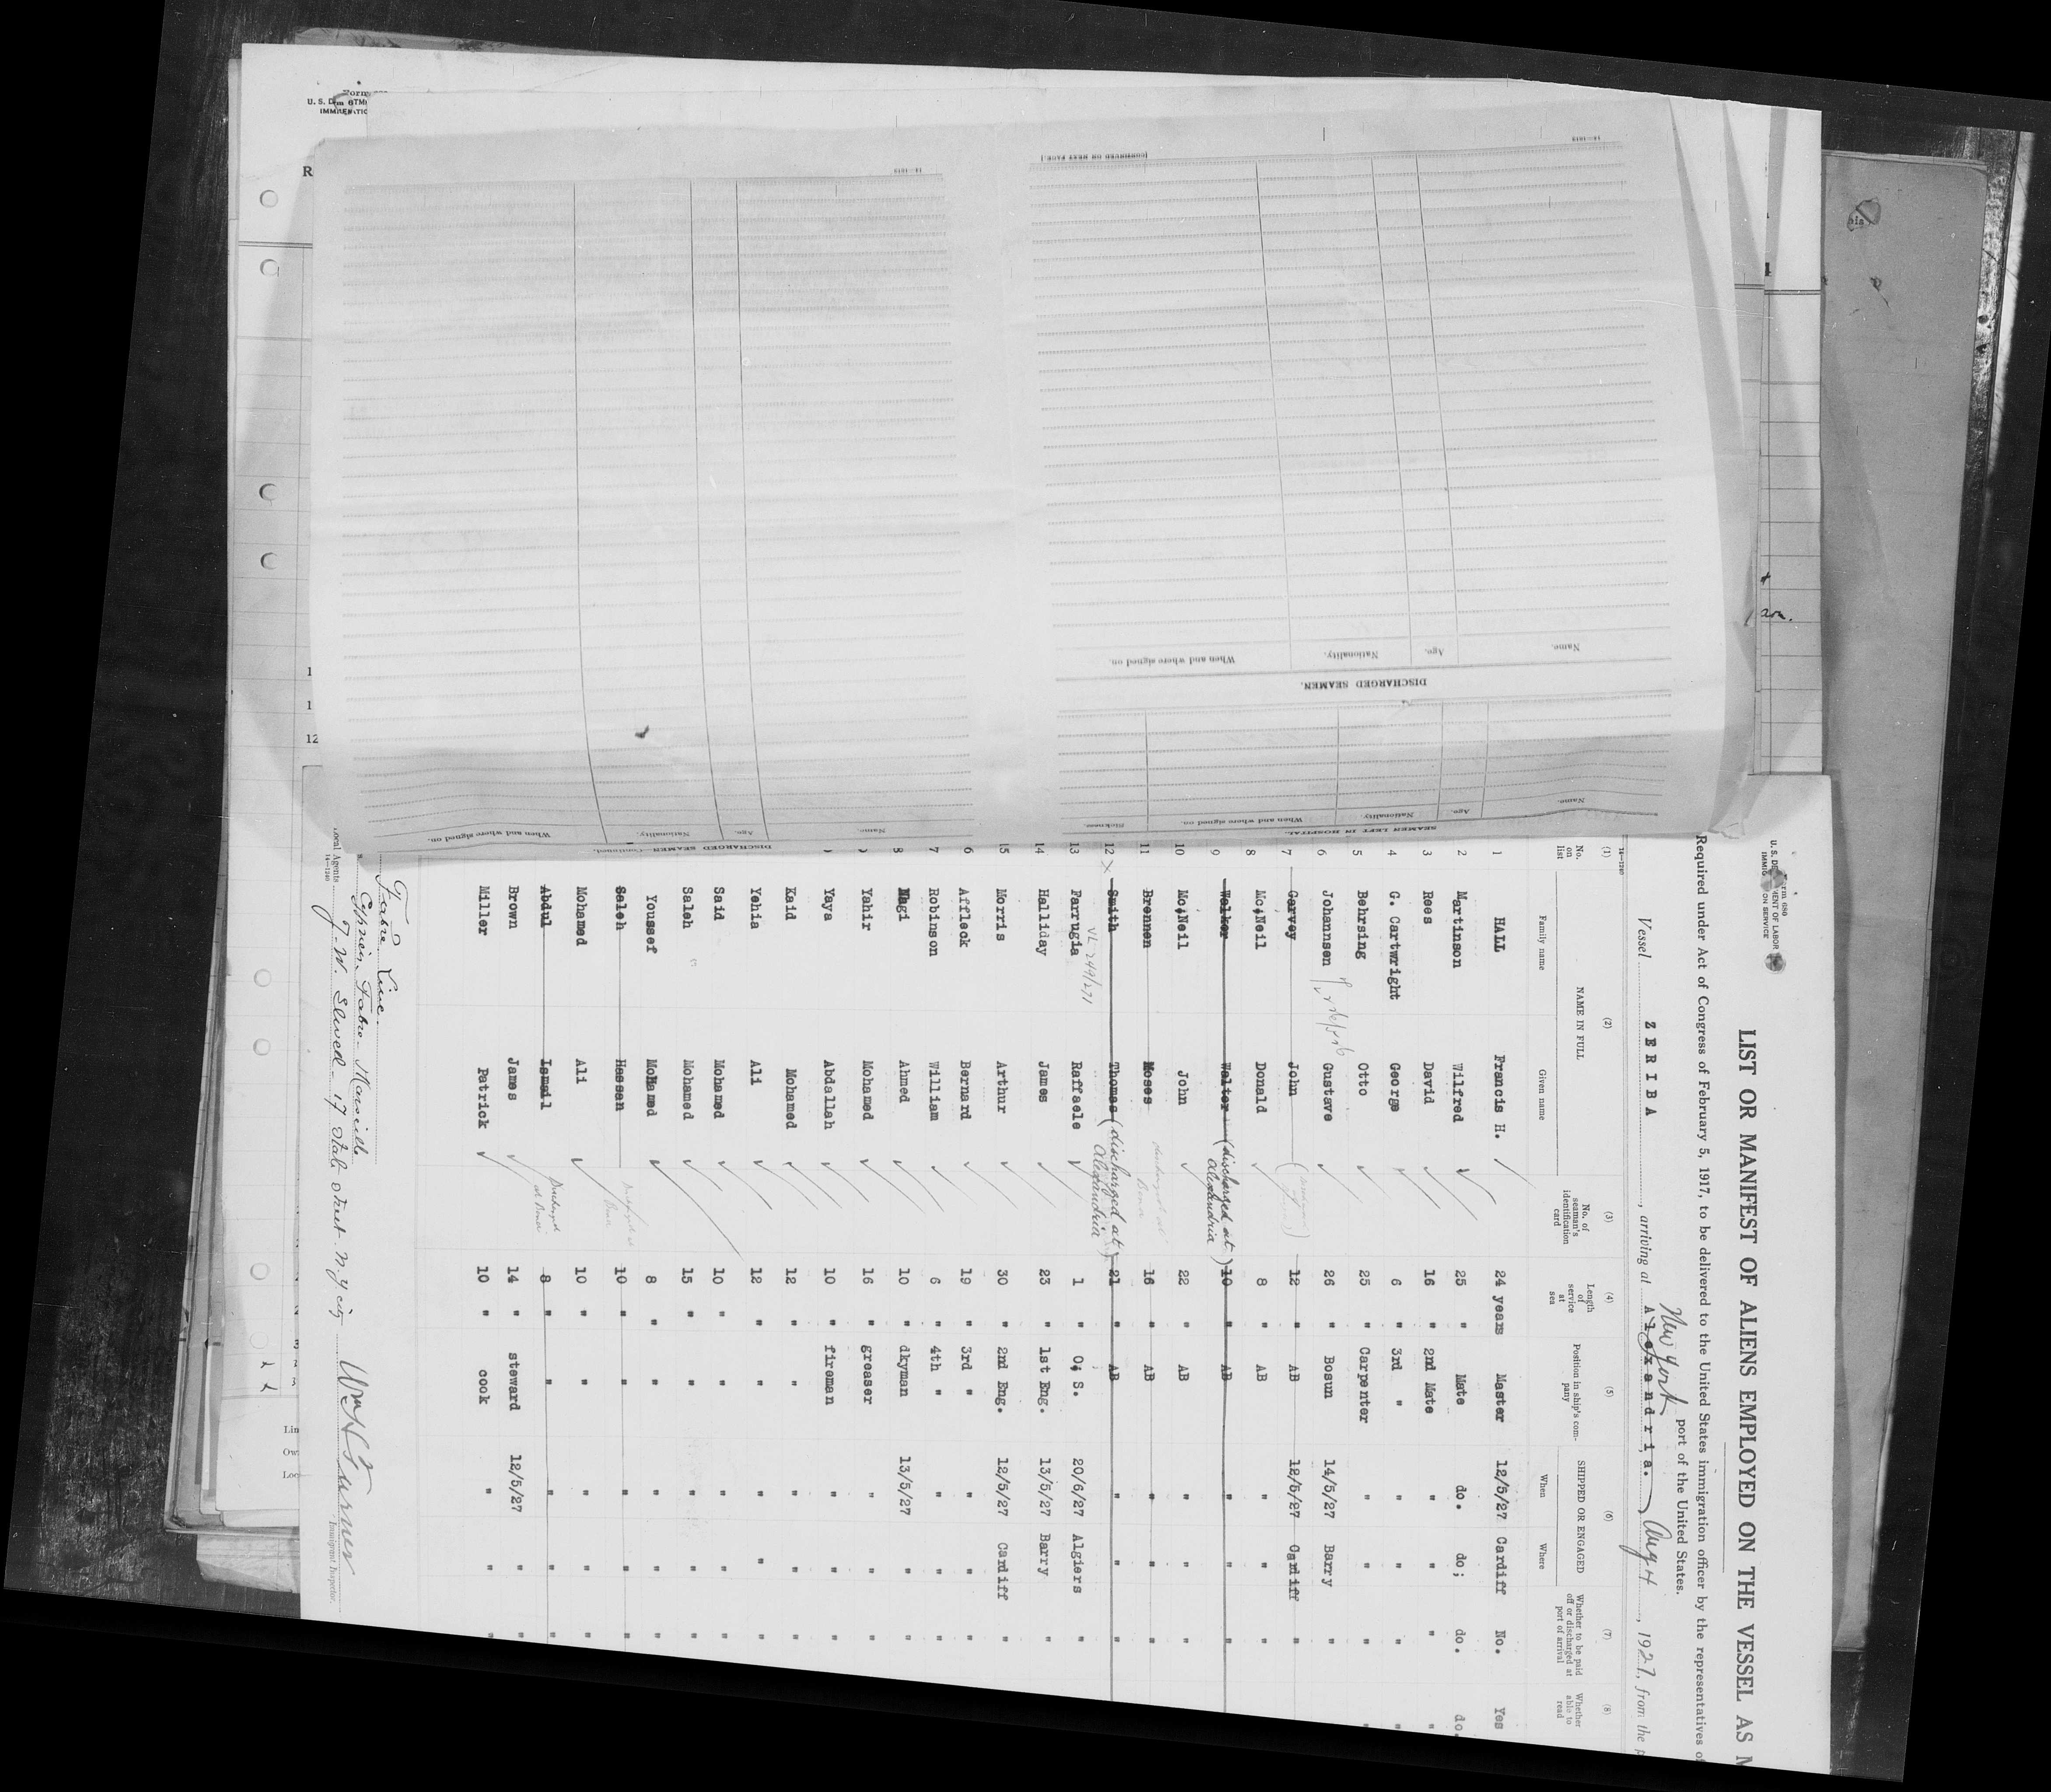 Form 680
U. S. DEPARTMENT OF LABOR
IMMIGRATION SERVICE
LIST OR MANIFEST OF ALIENS EMPLOYED ON THE VESSEL AS M
Required under Act of Congress of February 5, 1917, to be delivered to the United States immigration officer by the representatives of
port of the United States.
New York
Vessel ZERIBA, arriving at Alexandria. Aug 4, 1927, from the p
14—1240
(1) (2) (3) (4) (5) (6) (7) (8)
No. on list NAME IN FULL Family name Given name No. of seaman's identification card Length of service at sea Position in ship's company SHIPPED OR ENGAGED When Where Whether to be paid off or discharged at port of arrival Whether able to read
1 HALL Francis H. 24 years Master 12/5/27 Cardiff No. Yes
2 Martinson Wilfred 25 " Mate do. do; do. do.
3 Rees David 16 " 2nd Mate " " " "
4 G. Cartwright George 6 " 3rd " " " " "
5 Behrsing Otto 25 " Carpenter " " " "
6 Johannsen Gustave 26 " Bosun 14/5/27 Barry "
7 Garvey John 12 " AB 12/5/27 Cardiff "
8 Mc;Neil Donald 8 " AB " " "
9 Walker Walter (discharged at Alexandria) 10 " AB " " "
10 Mc;Neil John 22 " AB " " "
11 Brennen Moses discharged at 16 " AB " " "
12 Smith Thomas (discharged at Alexandria) 21 " AB " " "
VL 249/271
13 Farrugia Raffaele 1 " O; S. 20/6/27 Algiers "
14 Halliday James 23 " 1st Eng. 13/5/27 Barry "
15 Morris Arthur 30 " 2nd Eng. 12/5/27 Cardiff "
6 Affleck Bernard 19 " 3rd " " " "
7 Robinson William 6 " 4th " " " "
8 Nagi Ahmed 10 " dkyman 13/5/27 " "
Yahir Mohamed 16 " greaser " " "
Yaya Abdallah 10 " fireman " " "
Kaid Mohamed 12 " " " " "
Yehia Ali 12 " " " " "
Said Mohamed 10 " " " " "
Saleh Mohamed 15 " " " " "
Youssef Mohamed 8 " " " " "
Saleh Hassan 10 " " " " "
Mohamed Ali 10 " " " " "
Abdul Ismail Discharged at 8 " " " " "
Brown James 14 " steward 12/5/27 " "
Miller Patrick 10 " cook " " "
Fabre Line.
Cyprien Fabre Marseille
Local Agents J. W. Elwell 17 State Street N.Y city
14—1240
Immigrant Inspector.
SEAMEN LEFT IN HOSPITAL.
Name. Age. Nationality. When and where signed on. Sickness.
DISCHARGED SEAMEN.
Name. Age. Nationality. When and where signed on.
[CONTINUED ON NEXT PAGE.]
14—1019
DISCHARGED SEAMEN—Continued.
Name. Age. Nationality. When and where signed on.
14—1019
Form
U. S. D
12
Lin
Ow
Loc